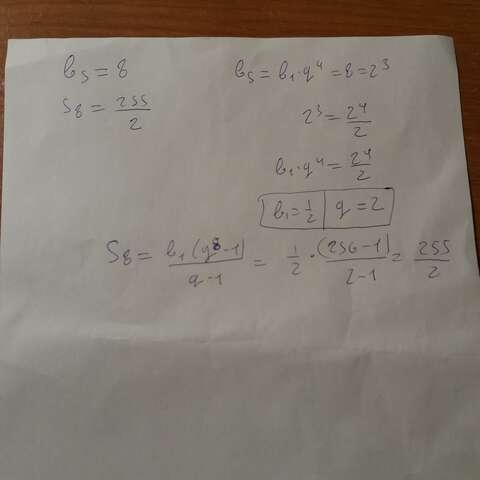 b₅ = 8
S₈ = 255/2
b₅ = b₁·q⁴ = 8 = 2³
2³ = 2⁴/2
b₁·q⁴ = 2⁴/2
b₁ = 1/2 | q = 2
S₈ = b₁(q⁸-1)/q-1 = 1/2 · (256-1)/2-1 = 255/2